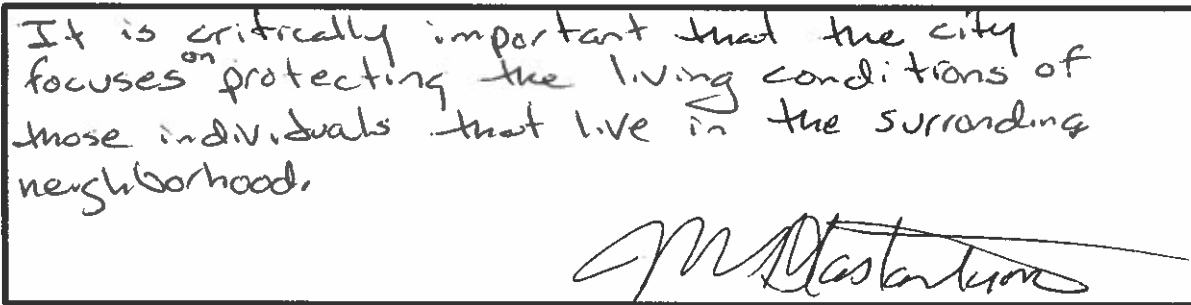 It is critically important that the city
focuses on protecting the living conditions of
those individuals that live in the surronding
neighborhood.